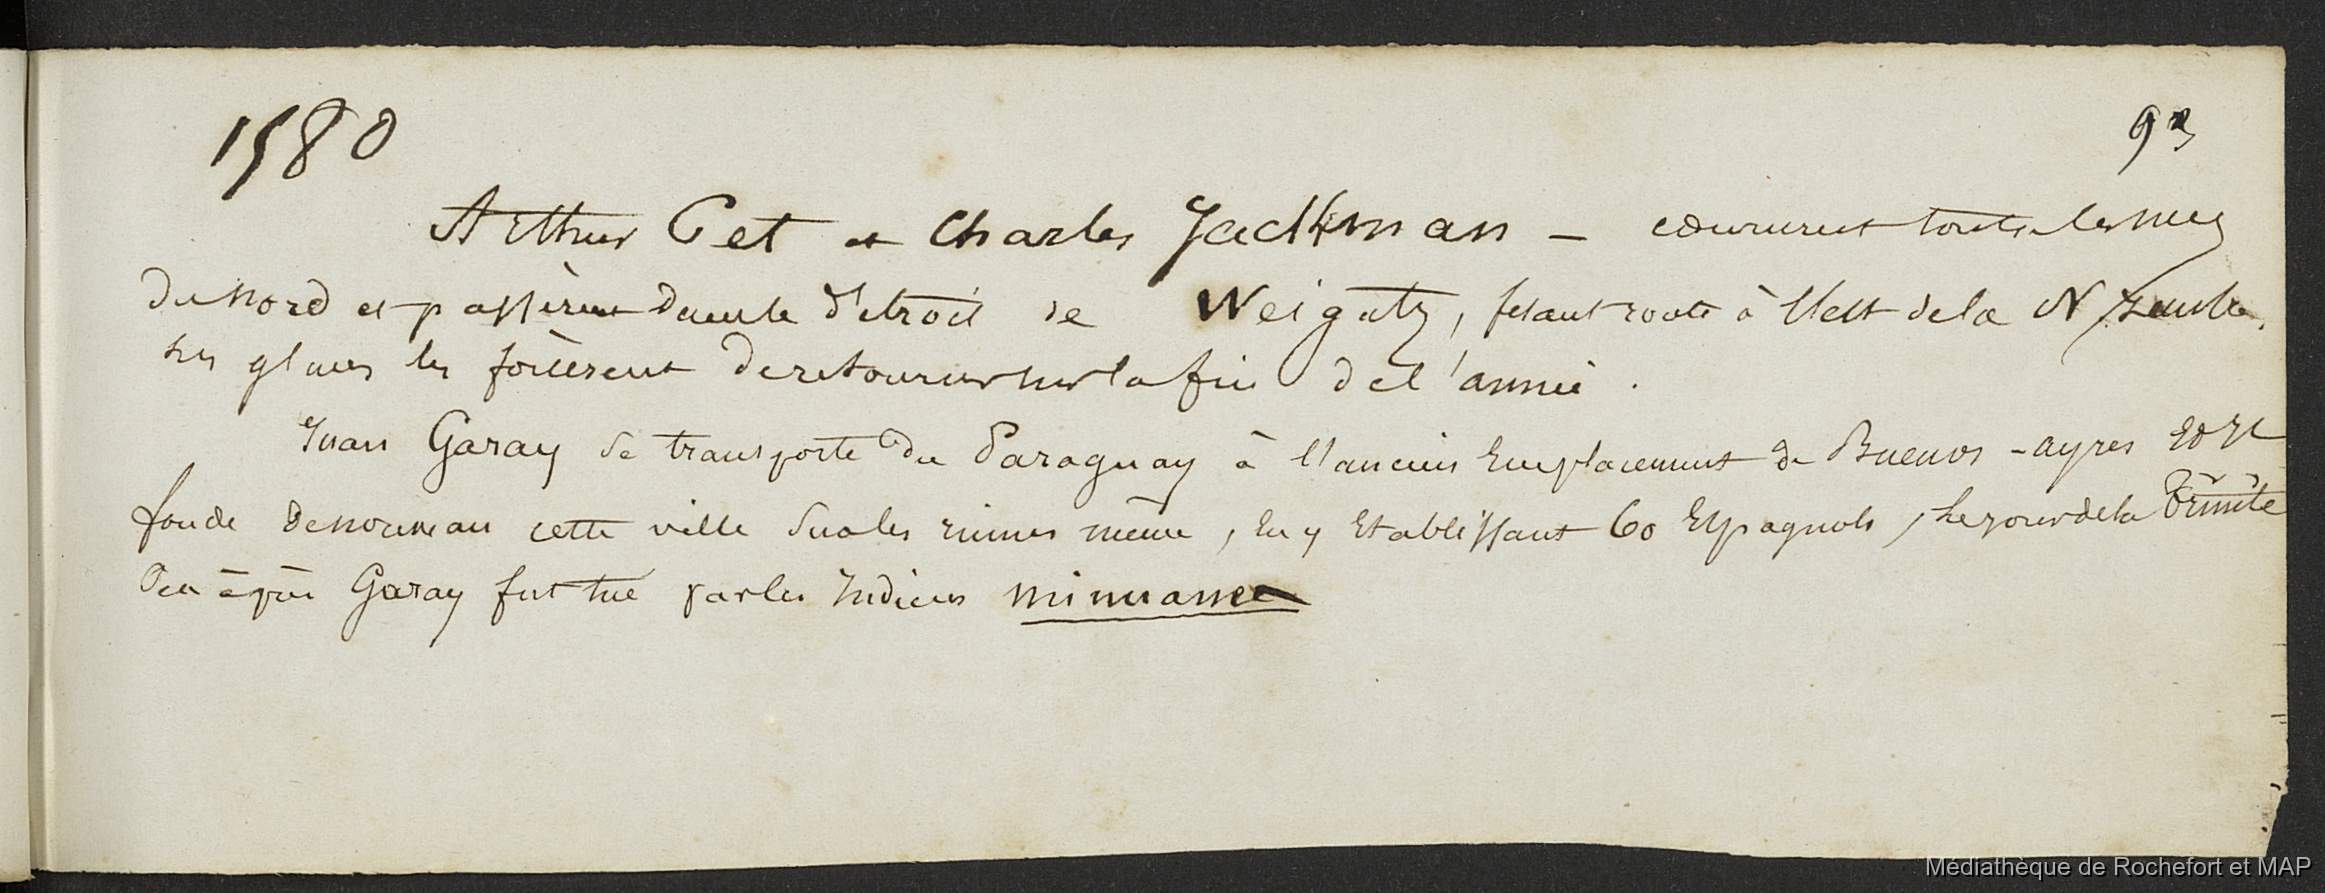 1580
93
Arthur Pet et Charles Jackman – coururent toutes les mers
du nord et passèrent dans le détroit de Weigatz, fesant route à l'est de la N Zemble,
les glaces les forcèrent de retourner sur la fin de l'année.
Juan Garay se transporte du Paraguay à l'ancien Emplacement de Buenos-ayres
fonde de nouveau cette ville sur les ruines même, En y Etablissant 60 Espagnols, le jour de la Trinité
Peu après Garay fut tué par les Indiens minuanes
Médiathèque de Rochefort et MAP